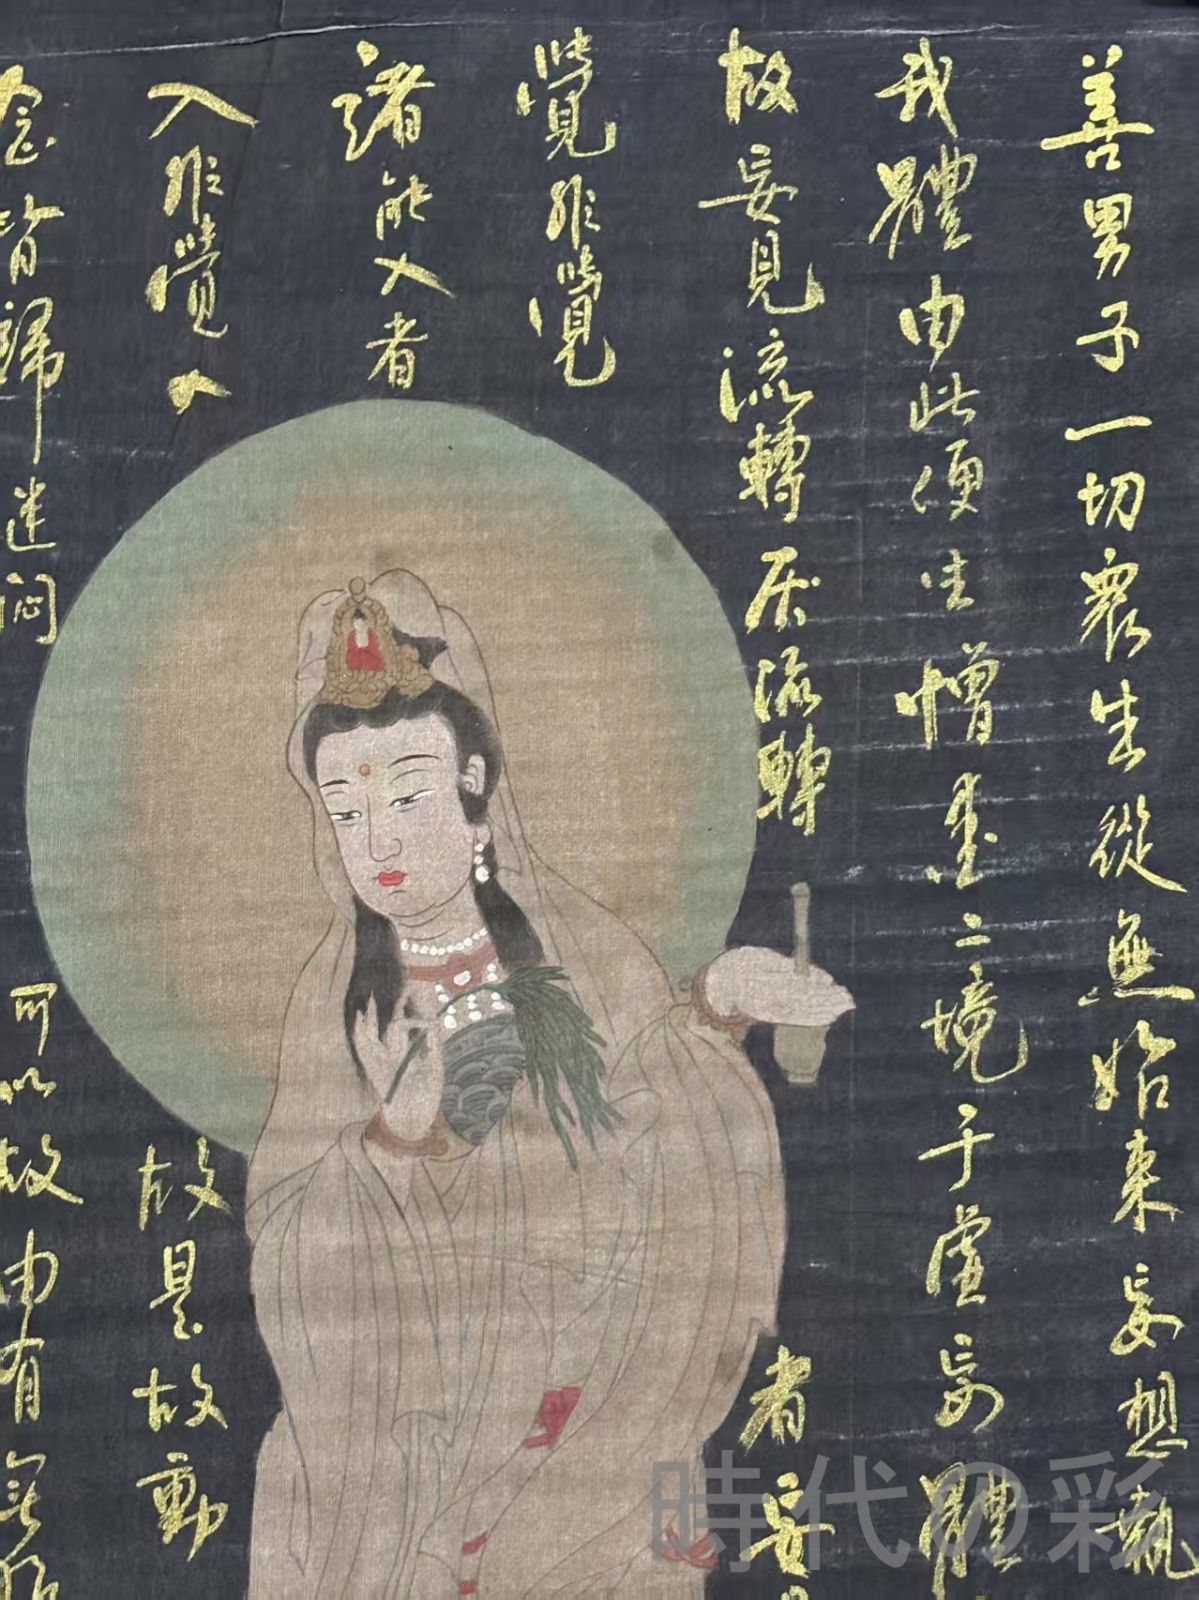 善男子一切衆生從無始来妄想執
我體由此便生憎愛二境于虛妄體
故妄見流轉厌流轉者妄見
覺非覺
諸能入者
入非覺入故是故動
念皆歸迷悶何以故由有無始
時代の彩